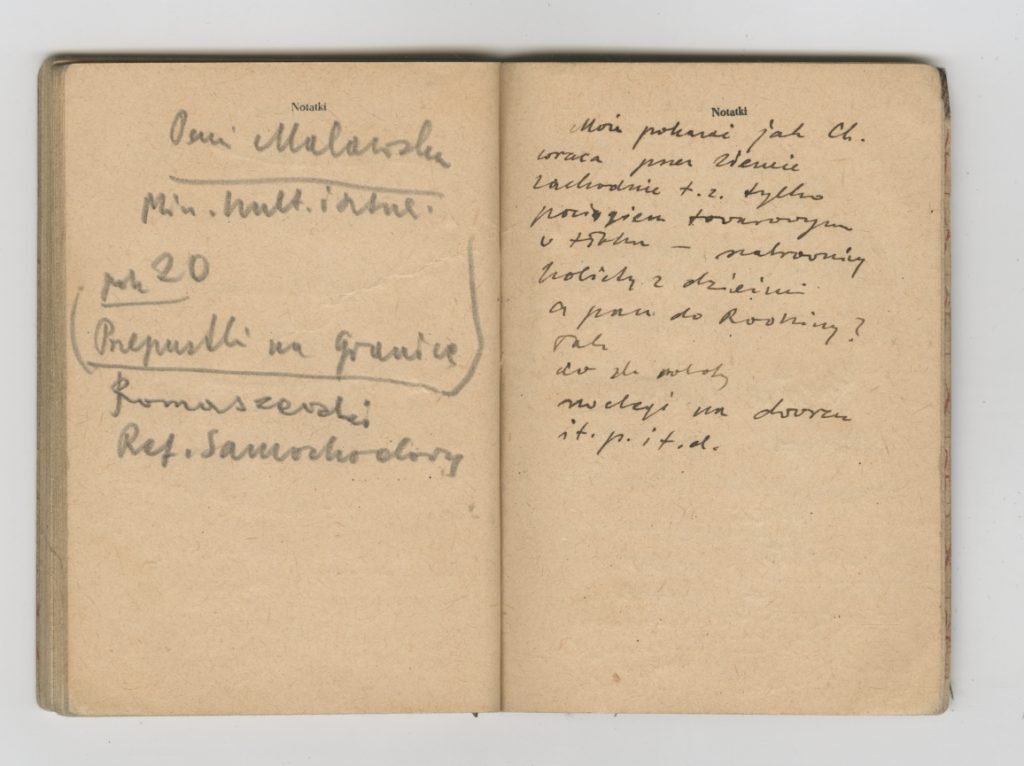 Notatki
Pani Malawska
Min. kult. i sztuk.
pok 20
Przepustki na Granicę
Romaszewski
Ref. Samochodowy
Notatki
Może pokazać jak Ch.
wraca przez ziemie
zachodnie t.z. tylko
pociągiem towarowym
w tłoku —
kobiety z dziećmi
a pan do Rodziny?
Tak
do
noclegi na dworcu
i t. p. i t. d.